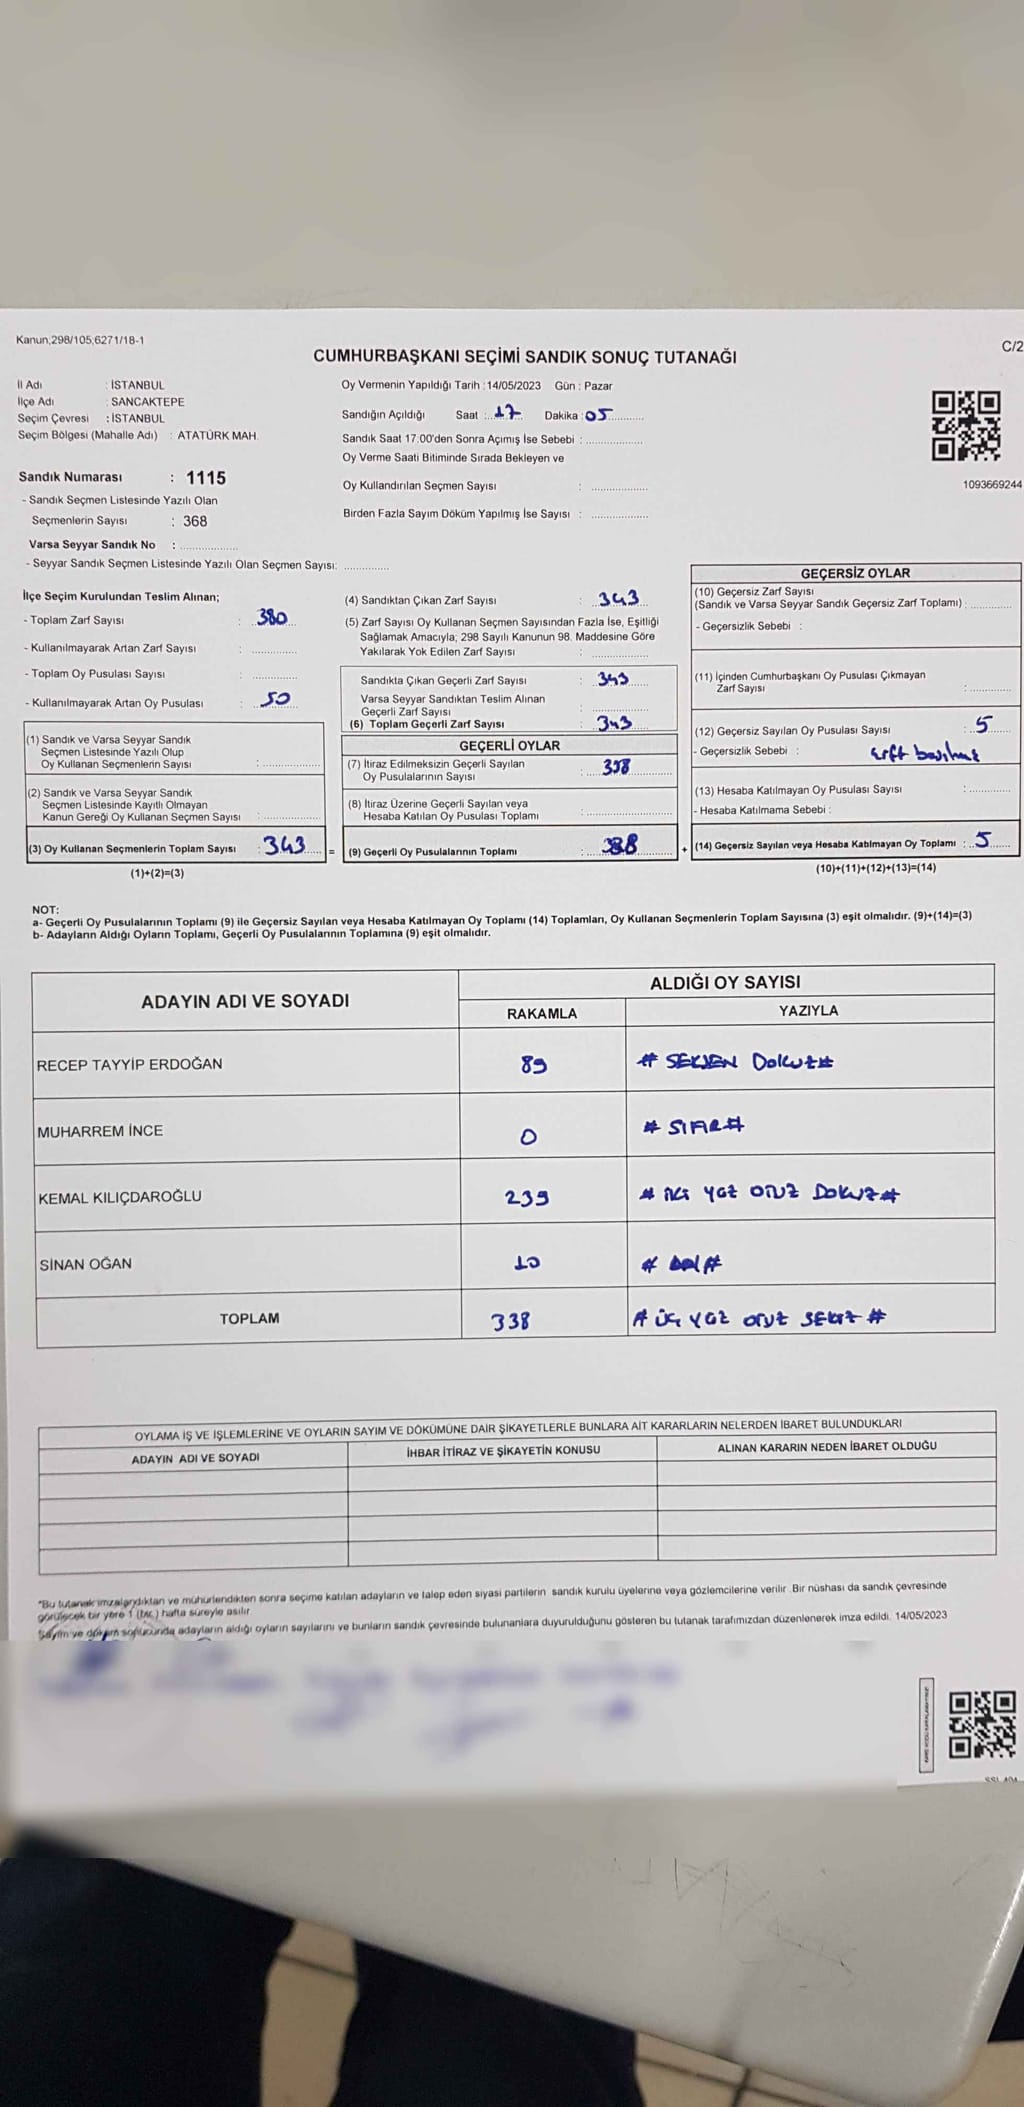 Kanun;298/105;6271/18-1
C/2
CUMHURBAŞKANI SEÇİMİ SANDIK SONUÇ TUTANAĞI
İl Adı : İSTANBUL
İlçe Adı : SANCAKTEPE
Seçim Çevresi : İSTANBUL
Seçim Bölgesi (Mahalle Adı) : ATATÜRK MAH.
Oy Vermenin Yapıldığı Tarih : 14/05/2023 Gün : Pazar
Sandığın Açıldığı Saat : 17 Dakika : 05
Sandık Saat 17:00'den Sonra Açımış İse Sebebi :
Oy Verme Saati Bitiminde Sırada Bekleyen ve
Oy Kullandırılan Seçmen Sayısı :
Birden Fazla Sayım Döküm Yapılmış İse Sayısı :
1093669244
Sandık Numarası : 1115
- Sandık Seçmen Listesinde Yazılı Olan
Seçmenlerin Sayısı : 368
Varsa Seyyar Sandık No :
- Seyyar Sandık Seçmen Listesinde Yazılı Olan Seçmen Sayısı:
İlçe Seçim Kurulundan Teslim Alınan;
- Toplam Zarf Sayısı : 380
- Kullanılmayarak Artan Zarf Sayısı :
- Toplam Oy Pusulası Sayısı :
- Kullanılmayarak Artan Oy Pusulası : 50
(1) Sandık ve Varsa Seyyar Sandık
Seçmen Listesinde Yazılı Olup
Oy Kullanan Seçmenlerin Sayısı :
(2) Sandık ve Varsa Seyyar Sandık
Seçmen Listesinde Kayıtlı Olmayan
Kanun Gereği Oy Kullanan Seçmen Sayısı :
(3) Oy Kullanan Seçmenlerin Toplam Sayısı : 343 =
(1)+(2)=(3)
(4) Sandıktan Çıkan Zarf Sayısı : 343
(5) Zarf Sayısı Oy Kullanan Seçmen Sayısından Fazla İse, Eşitliği
Sağlamak Amacıyla; 298 Sayılı Kanunun 98. Maddesine Göre
Yakılarak Yok Edilen Zarf Sayısı :
Sandıkta Çıkan Geçerli Zarf Sayısı : 343
Varsa Seyyar Sandıktan Teslim Alınan
Geçerli Zarf Sayısı :
(6) Toplam Geçerli Zarf Sayısı : 343
GEÇERLİ OYLAR
(7) İtiraz Edilmeksizin Geçerli Sayılan
Oy Pusulalarının Sayısı : 338
(8) İtiraz Üzerine Geçerli Sayılan veya
Hesaba Katılan Oy Pusulası Toplamı :
(9) Geçerli Oy Pusulalarının Toplamı : 338 +
GEÇERSİZ OYLAR
(10) Geçersiz Zarf Sayısı
(Sandık ve Varsa Seyyar Sandık Geçersiz Zarf Toplamı) :
- Geçersizlik Sebebi :
(11) İçinden Cumhurbaşkanı Oy Pusulası Çıkmayan
Zarf Sayısı :
(12) Geçersiz Sayılan Oy Pusulası Sayısı : 5
- Geçersizlik Sebebi :
(13) Hesaba Katılmayan Oy Pusulası Sayısı :
- Hesaba Katılmama Sebebi :
(14) Geçersiz Sayılan veya Hesaba Katılmayan Oy Toplamı : 5
(10)+(11)+(12)+(13)=(14)
NOT:
a- Geçerli Oy Pusulalarının Toplamı (9) ile Geçersiz Sayılan veya Hesaba Katılmayan Oy Toplamı (14) Toplamları, Oy Kullanan Seçmenlerin Toplam Sayısına (3) eşit olmalıdır. (9)+(14)=(3)
b- Adayların Aldığı Oyların Toplamı, Geçerli Oy Pusulalarının Toplamına (9) eşit olmalıdır.
ADAYIN ADI VE SOYADI
ALDIĞI OY SAYISI
RAKAMLA YAZIYLA
RECEP TAYYİP ERDOĞAN 89 # SEKSEN DOKUZ #
MUHARREM İNCE 0 # SIFIR #
KEMAL KILIÇDAROĞLU 239 # İKİ YÜZ OTUZ DOKUZ #
SİNAN OĞAN 10 # ON #
TOPLAM 338 # ÜÇ YÜZ OTUZ SEKİZ #
OYLAMA İŞ VE İŞLEMLERİNE VE OYLARIN SAYIM VE DÖKÜMÜNE DAİR ŞİKAYETLERLE BUNLARA AİT KARARLARIN NELERDEN İBARET BULUNDUKLARI
ADAYIN ADI VE SOYADI İHBAR İTİRAZ VE ŞİKAYETİN KONUSU ALINAN KARARIN NEDEN İBARET OLDUĞU
"Bu tutanak imzalandıktan ve mühürlendikten sonra seçime katılan adayların ve talep eden siyasi partilerin sandık kurulu üyelerine veya gözlemcilerine verilir. Bir nüshası da sandık çevresinde
görülecek bir yere 1 (bir) hafta süreyle asılır.
Sayım ve döküm sonucunda adayların aldığı oyların sayılarını ve bunların sandık çevresinde bulunanlara duyurulduğunu gösteren bu tutanak tarafımızdan düzenlenerek imza edildi. 14/05/2023